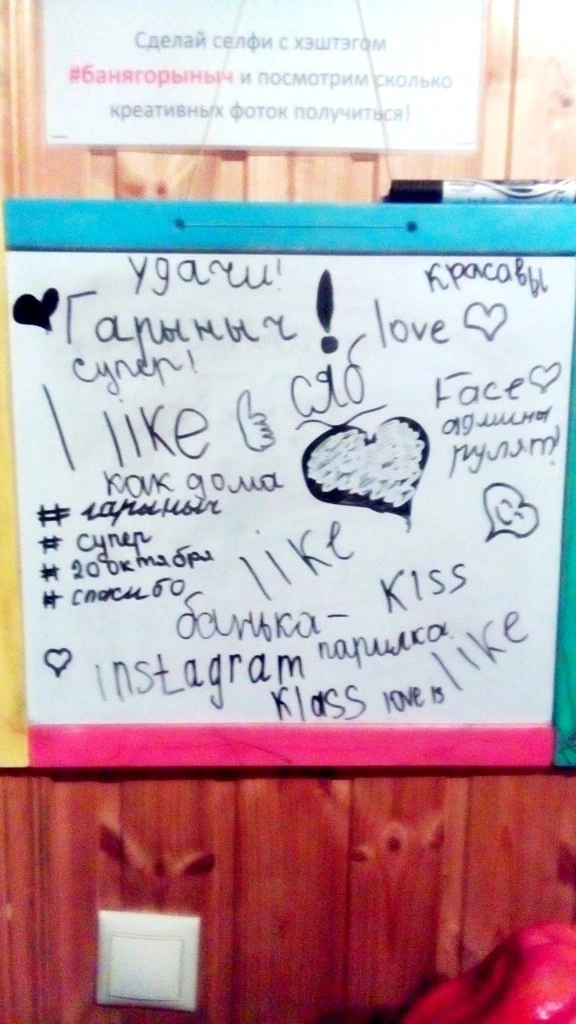 Сделай селфи с хэштэгом
#банягорыныч и посмотрим сколько
креативных фоток получиться!
удачи!
красавы
Гарыныч !
love
супер!
сяб
Face
I like
админы
рулят!
как дома
# гарыныч
# супер
# 20 октября
# спасибо
like
Kiss
банька-
парилка
like
instagram
Klass
love is